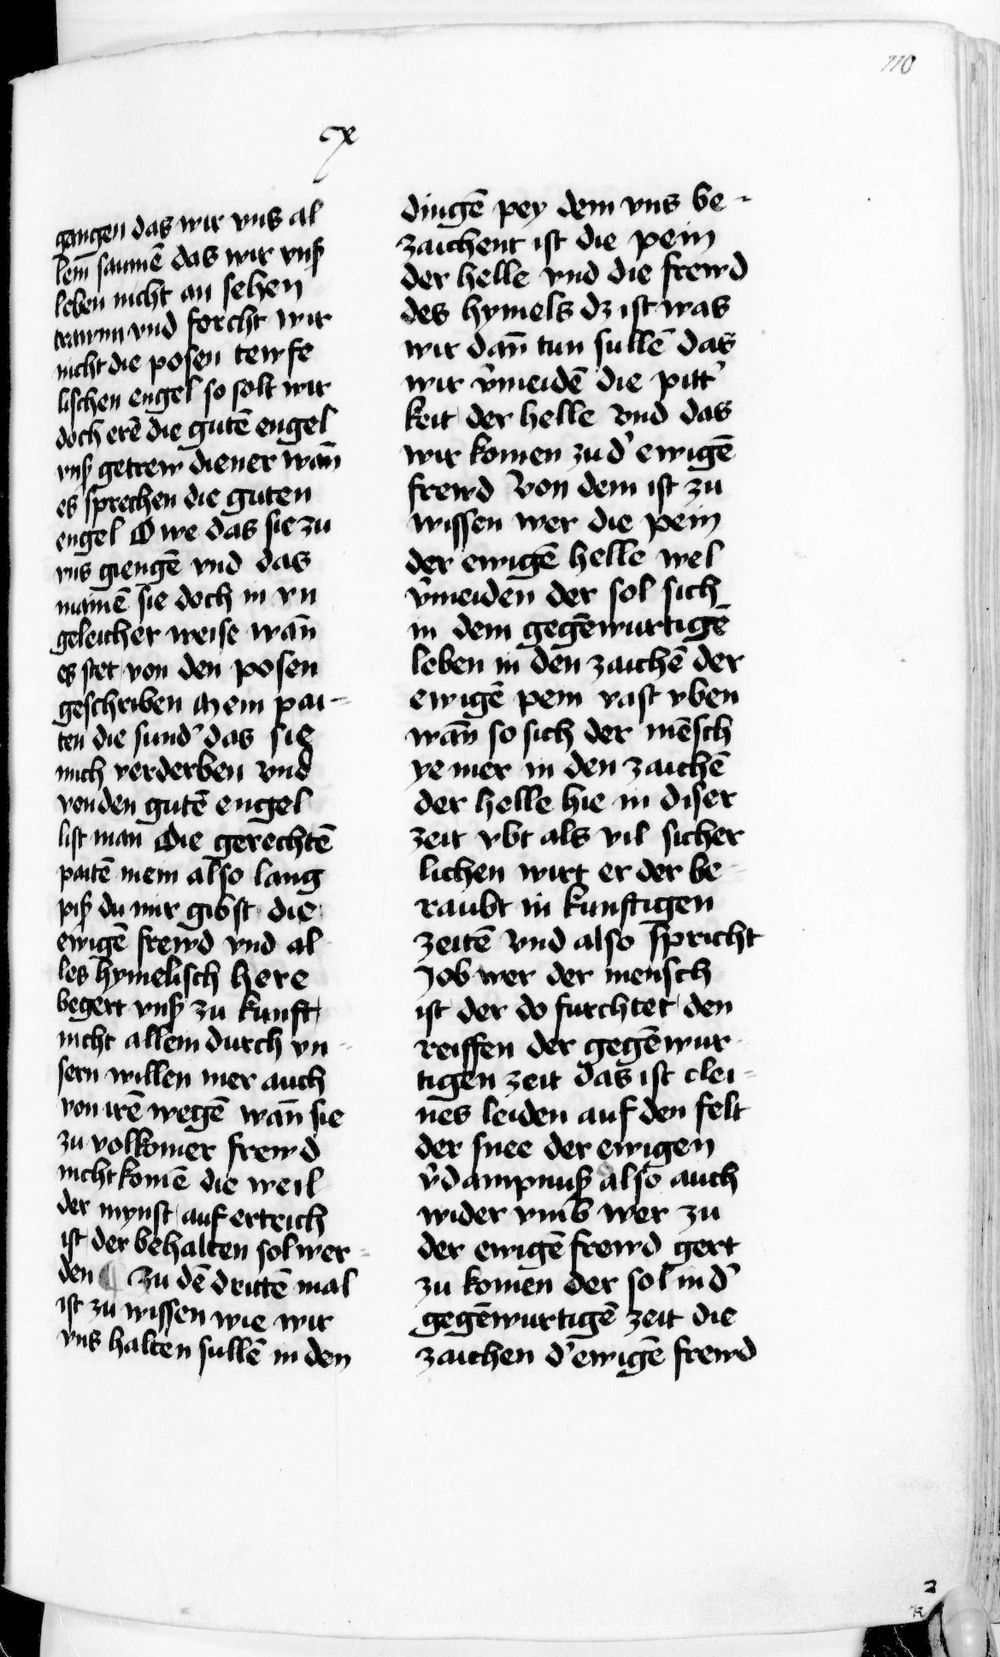 110
cx
gangen das wir vns al
lein saumē das wir vnß
leben nicht an sehen
trawrn vnd forcht wir
nicht die posen tewfe
lischen engel so solt wir
doch erē die gutē engel
vnß getrew diener wan̄
es sprechen die guten
engel O we das sie zu
vns giengē vnd das
mainē sie doch in vn
geleicher weise wan̄
es stet von den posen
geschriben Mein pai-
ten die sund' das sie
mich verderben vnd
von den gutē engel
list man Die gerechtē
paitē mein also lang
piß du mir gibst die
ewigē frewd vnd al
les hymelisch here
begert vnß zu kunft
nicht allein durch vn-
sern willen mer auch
von irē wegē wan̄ sie
zu volkomer frewd
nicht komē die weil
der mynst auf ertreich
ist der behalten sol wer-
den ¶ Zu dē drittē mal
ist zu wissen wie wir
vns halten sullē in den
dingē pey dem vns be-
zaichent ist die pein
der helle vnd die frewd
des hymels dz ist was
wir dan̄ tun sullē das
wir v̾meidē die pitt'
keit der helle vnd das
wir komen zu d' ewigē
frewd Von dem ist zu
wissen wer die pein
der ewigē helle wel
v̾meiden der sol sich
in dem gegēwurtigē
leben in den zaichē der
ewigē pein vast vben
wan̄ so sich der mēsch
ye mer in den zaichē
der helle hie in diser
zeit vbt als vil sicher
lichen wirt er der be-
raubt in kunftigen
zeitē Vnd also spricht
Job wer der mensch
ist der do furchtet den
reiffen der gegēwur-
tigen zeit das ist clei-
nes leiden auf den felt
der snee der ewigen
v̾dampnuß also auch
wider vmb wer zu
der ewigē frewd gert
zu komen der sol in d'
gegēwurtigē zeit die
zaichen d' ewigē frewd
2